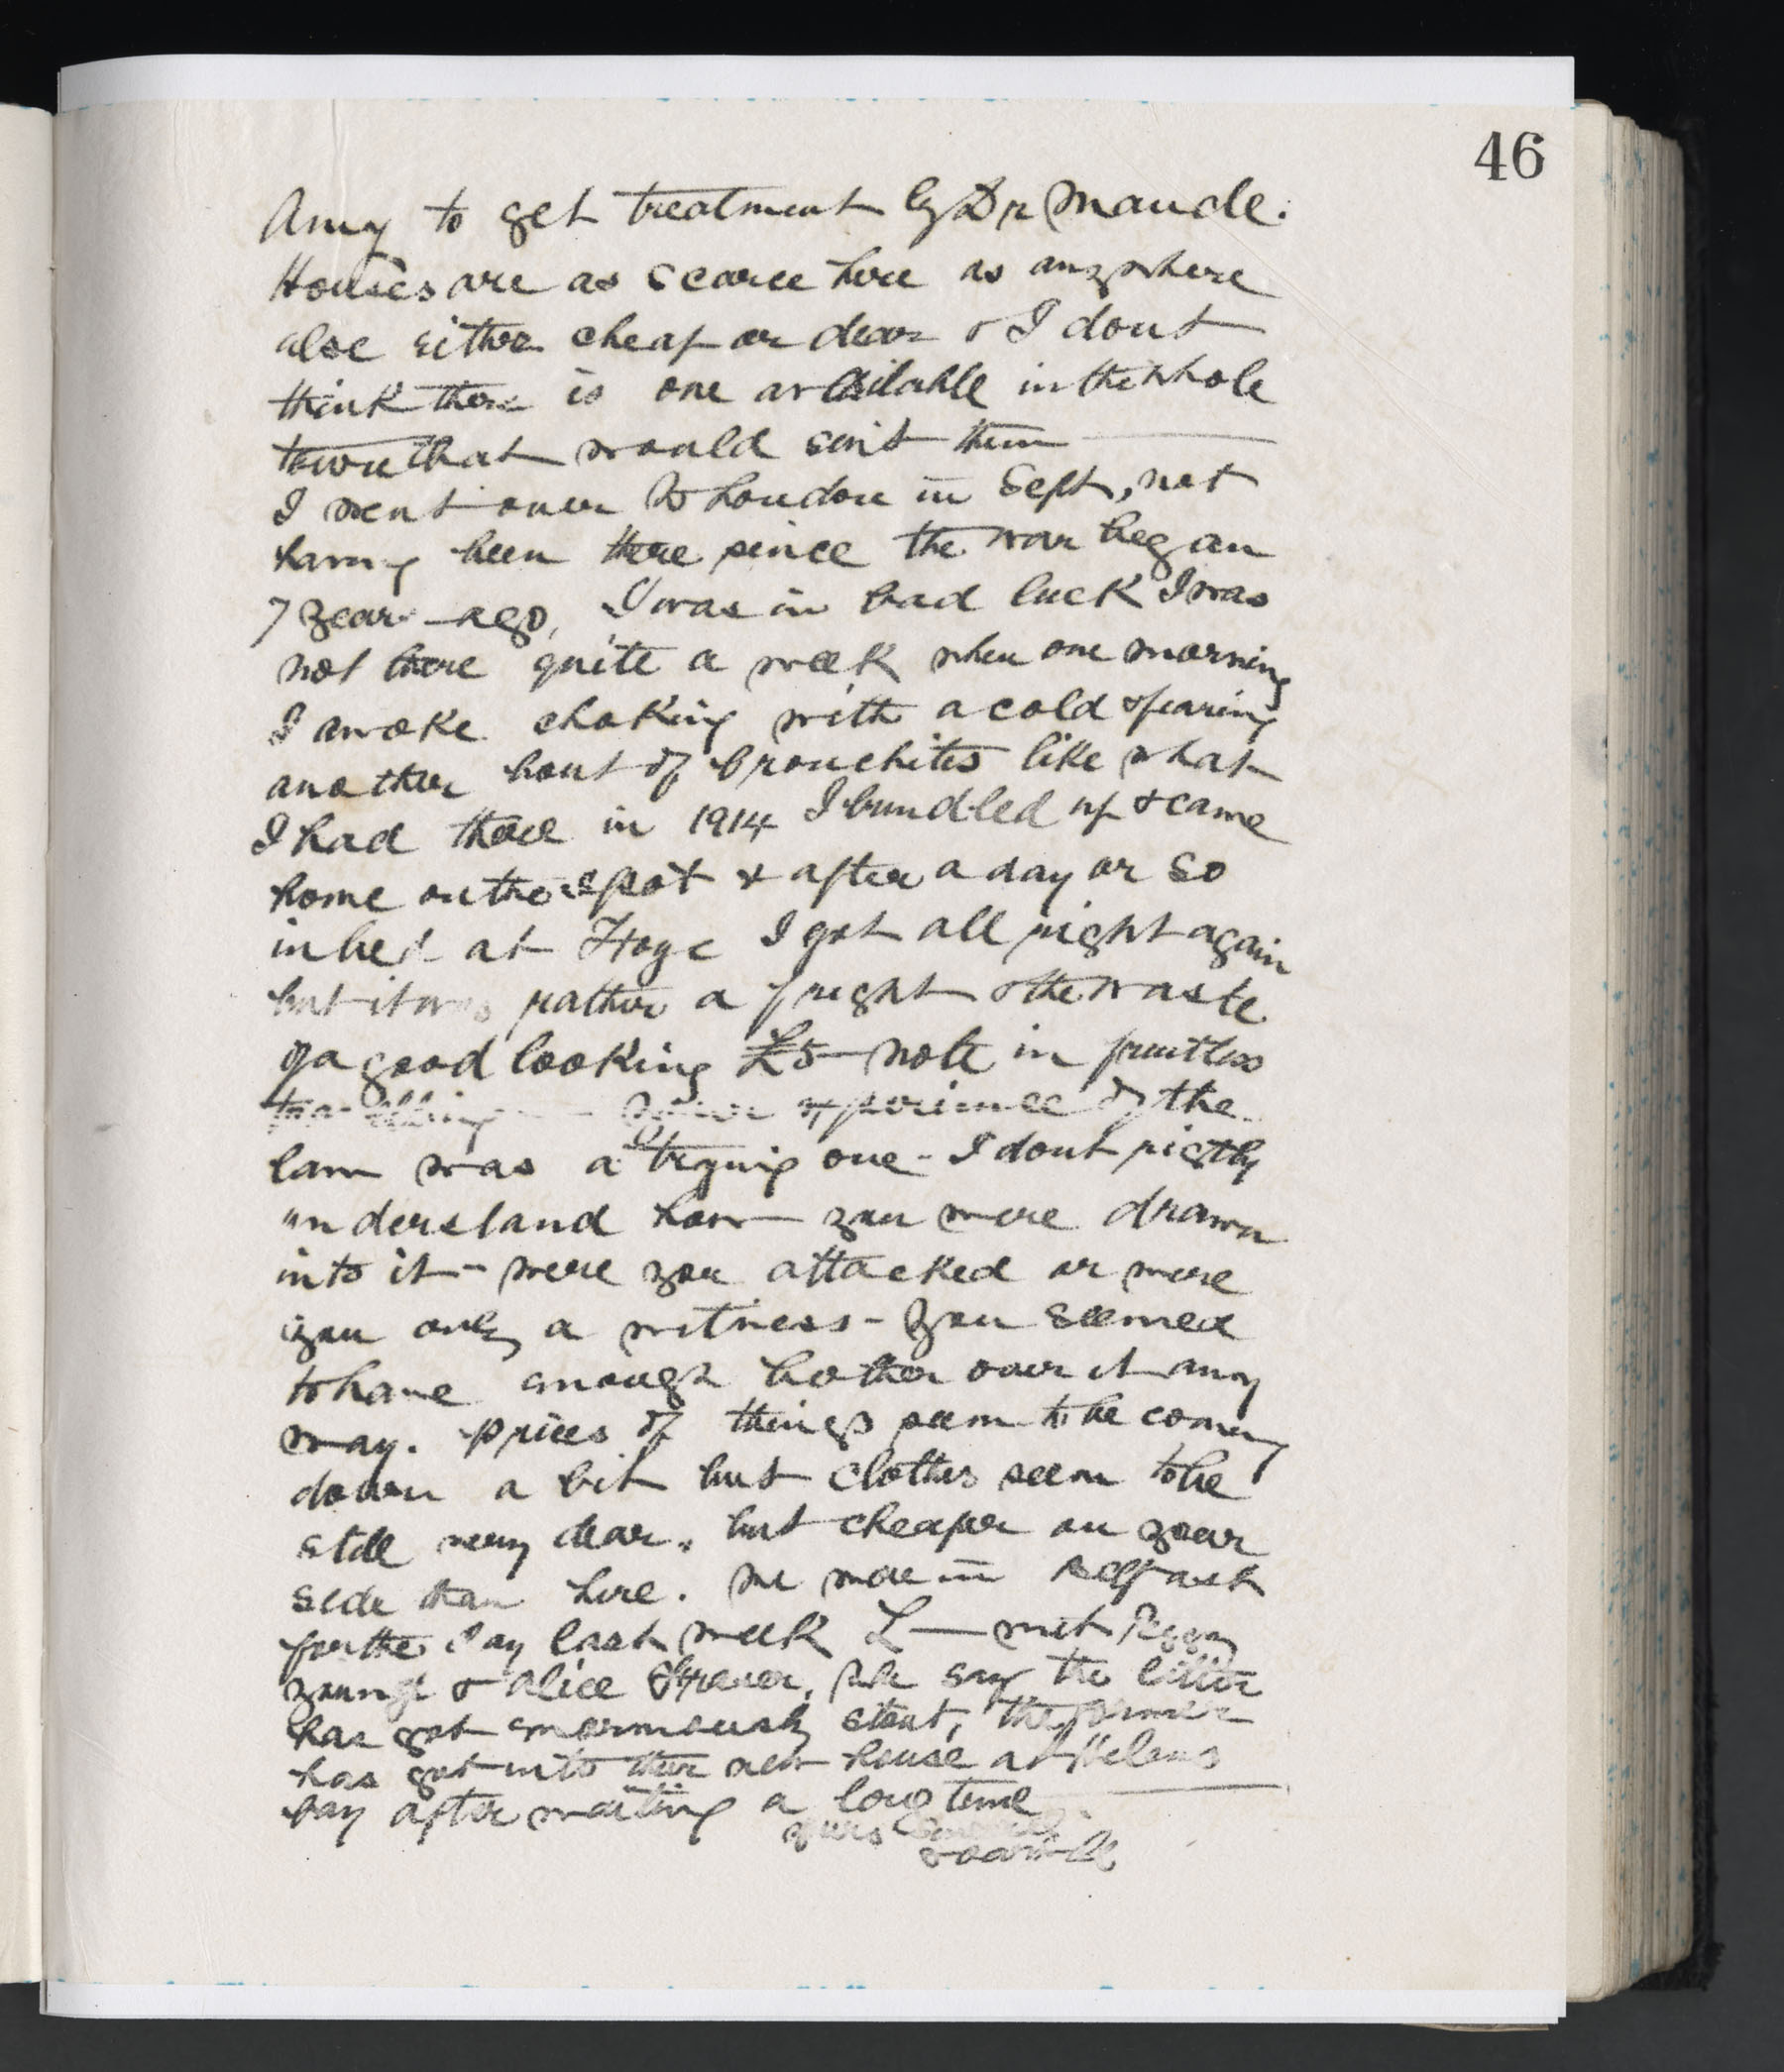 46
Amy to get treatment by Dr Maude.
Houses are as scarce here as anywhere
else either cheap or dear & I dont
think there is one available in the whole
town that would suit them
I went over to London in Sept, not
having been there since the war began
7 years ago, I was in bad luck I was
not there quite a week when one morning
I awoke choking with a cold & fearing
another bout of bronchitis like what
I had there in 1914 I bundled up & came
home on the spot & after a day or so
in bed at I got all right again
but it was rather a fright & the waste
of a good looking £5 note in fruitless
travelling — experience of the
law was a trying one - I dont rightly
understand how you were drawn
into it - were you attacked or were
you only a witness - you seemed
to have enough bother over it any
way. Prices of things seem to be coming
down a bit but clothes seem to be
still very dear, but cheaper on your
side than here. We were in Belfast
for the day last week L— met Peggy
Young & Alice, she says the latter
has got enormously stout, the former
has got into their new house at Helens
Bay after waiting a long time
yours